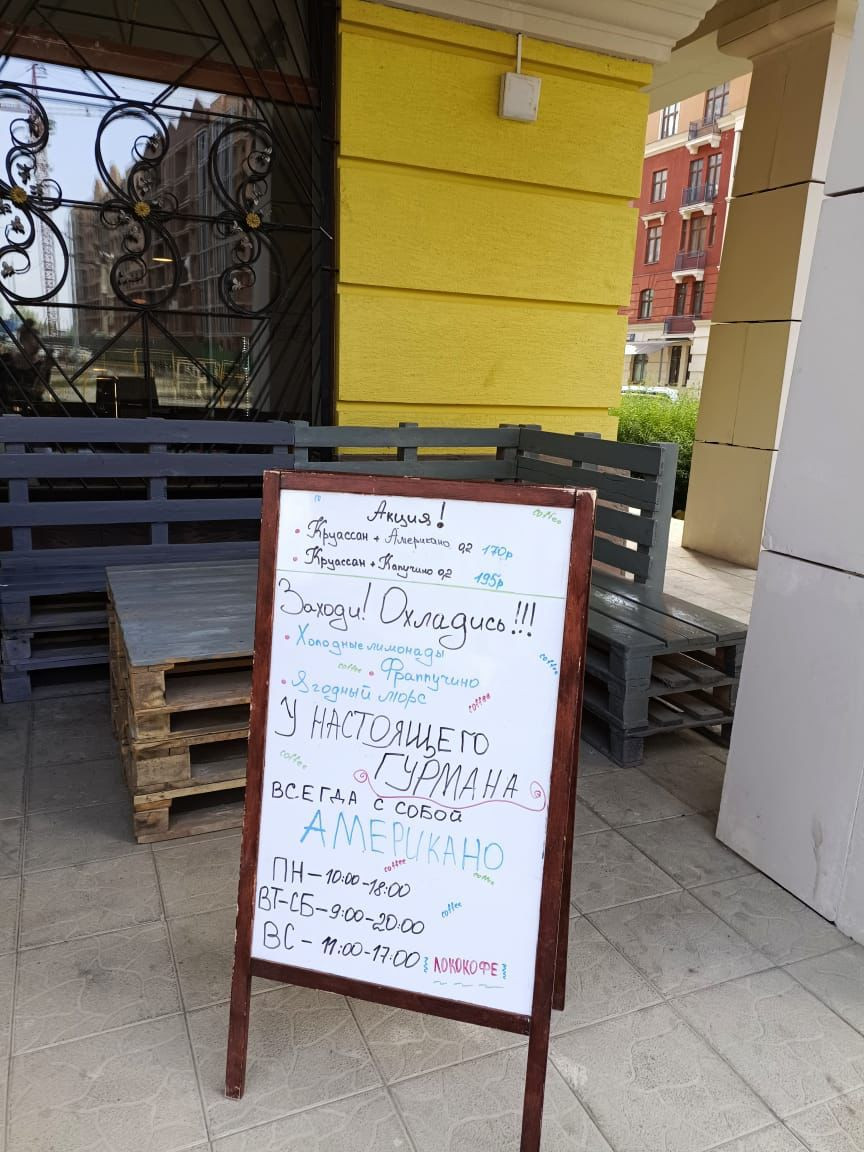 Акция!
coffee
• Круассан + Американо 0,2 170р
• Круассан + Капучино 0,2 195р
Заходи! Охладись!!!
• Холодные лимонады
coffee • Фраппучино coffee
• Ягодный морс coffee
У НАСТОЯЩЕГО
coffee ГУРМАНА
ВСЕГДА С СОБОЙ
АМЕРИКАНО
coffee
ПН – 10:00 - 18:00 coffee
ВТ-СБ – 9:00 - 20:00 coffee
ВС – 11:00 - 17:00 ЛОКОКОФЕ